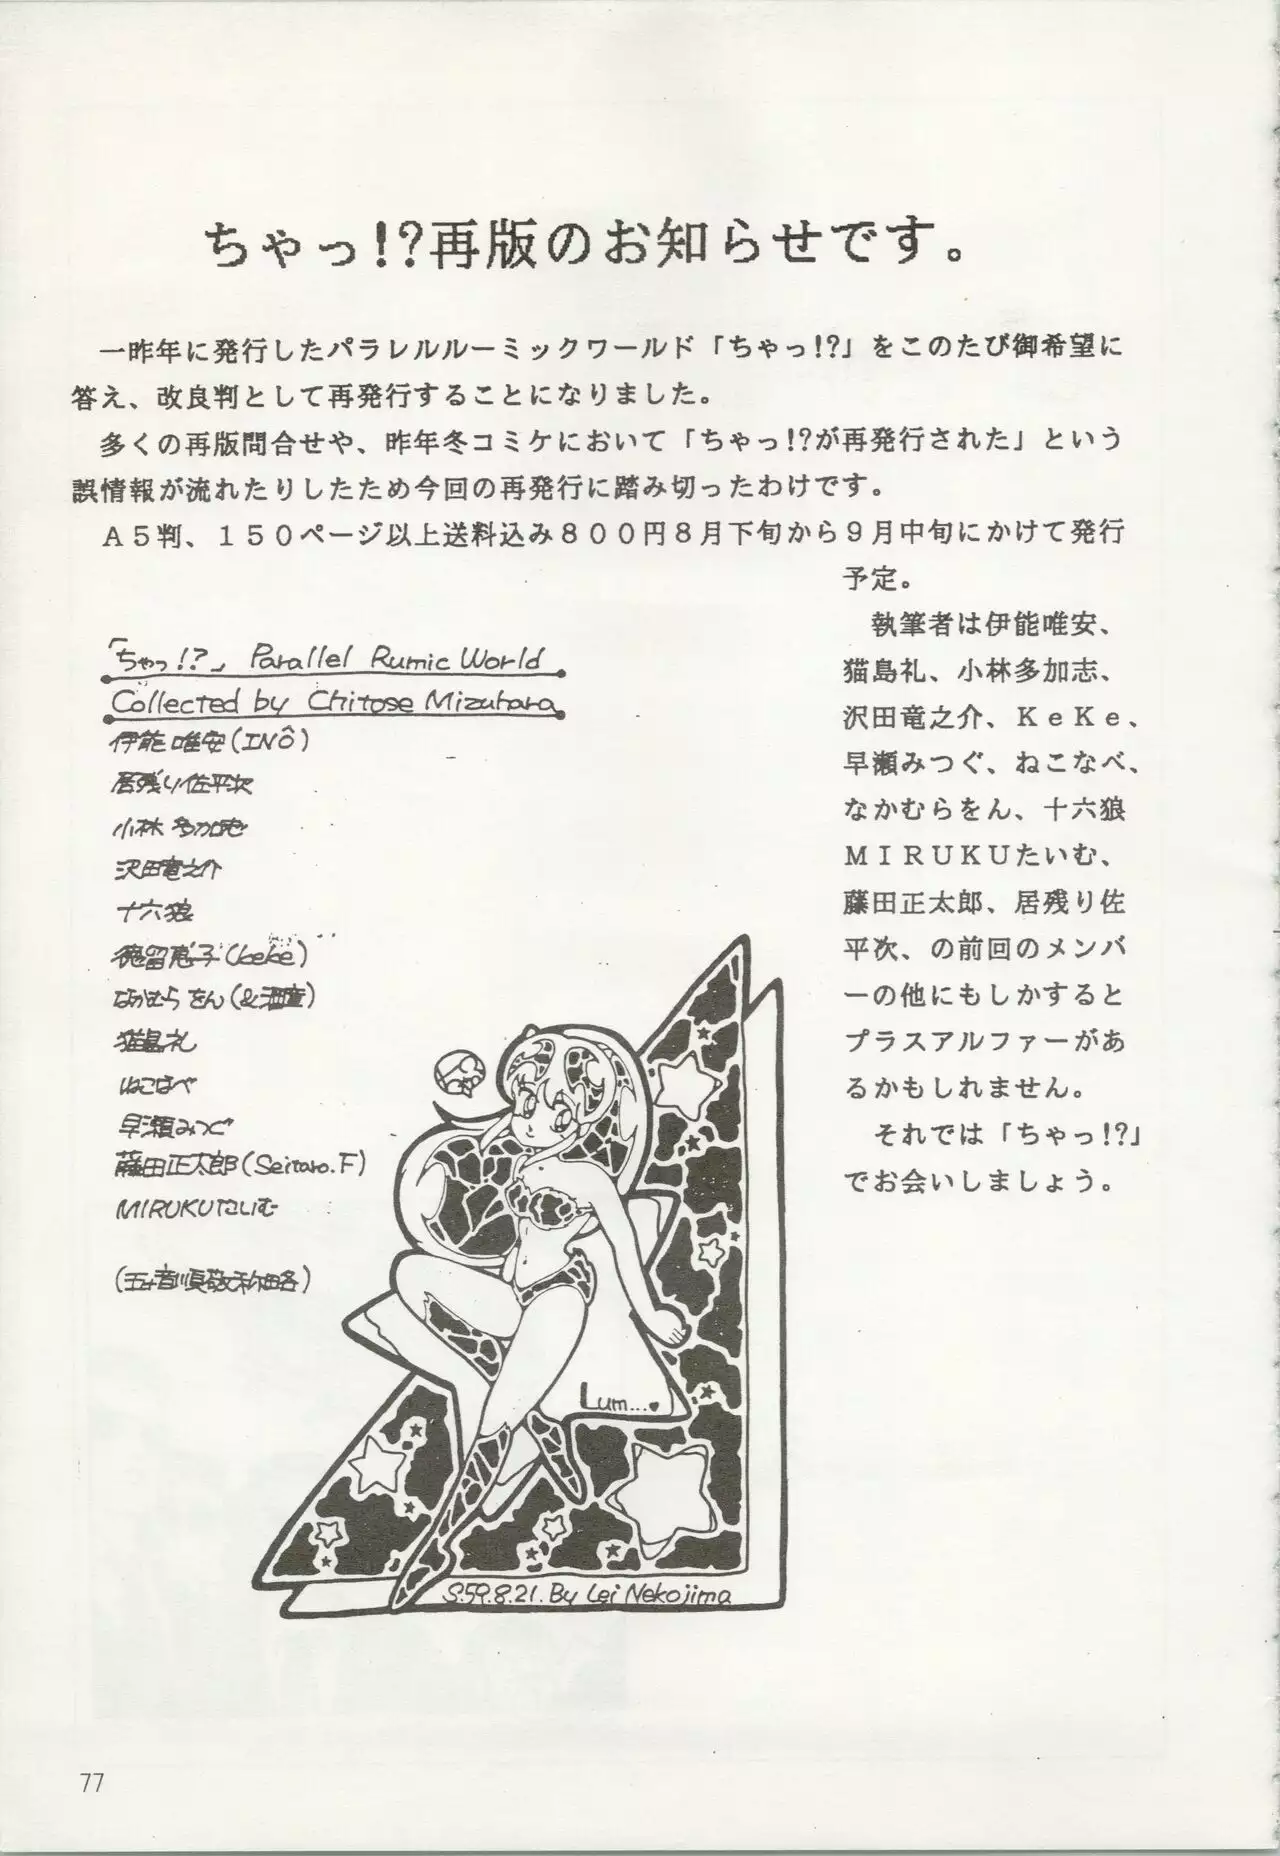 ちゃっ!?再版のお知らせです。
一昨年に発行したパラレルルーミックワールド「ちゃっ!?」をこのたび御希望に
答え、改良判として再発行することになりました。
多くの再版問合せや、昨年冬コミケにおいて「ちゃっ!?が再発行された」という
誤情報が流れたりしたため今回の再発行に踏み切ったわけです。
A5判、150ページ以上送料込み800円8月下旬から9月中旬にかけて発行
予定。
執筆者は伊能唯安、
猫島礼、小林多加志、
沢田竜之介、KeKe、
早瀬みつぐ、ねこなべ、
なかむらをん、十六狼
MIRUKUたいむ、
藤田正太郎、居残り佐
平次、の前回のメンバ
ーの他にもしかすると
プラスアルファーがあ
るかもしれません。
それでは「ちゃっ!?」
でお会いしましょう。
「ちゃっ!?」 Parallel Rumic World
Collected by Chitose Mizuhara
伊能 唯安(INÔ)
居残り佐平次
小林 多加志
沢田竜之介
十六狼
徳留恵子(keke)
なかむら をん(&酒童)
猫島礼
ねこなべ
早瀬みつぐ
藤田正太郎(Seitaro.F)
MIRUKUたいむ
(五十音順敬称略)
Lum...♥
S.59.8.21. By Lei Nekojima
77